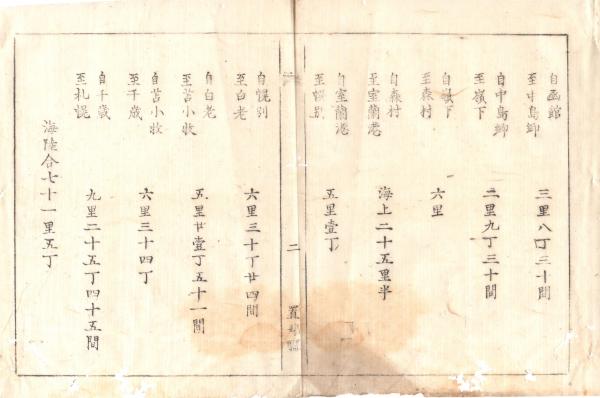 自函館
至中島郷
三里八丁三十間
自中島郷
至嶺下
二里九丁三十間
自嶺下
至森村
六里
自森村
至室蘭港
海上二十五里半
自室蘭港
至幌別
五里壹丁
二
自幌別
至白老
六里三十丁廿四間
自白老
至苫小牧
五里廿壹丁五十一間
自苫小牧
至千歳
六里三十四丁
自千歳
至札幌
九里二十五丁四十五間
海陸合七十一里五丁